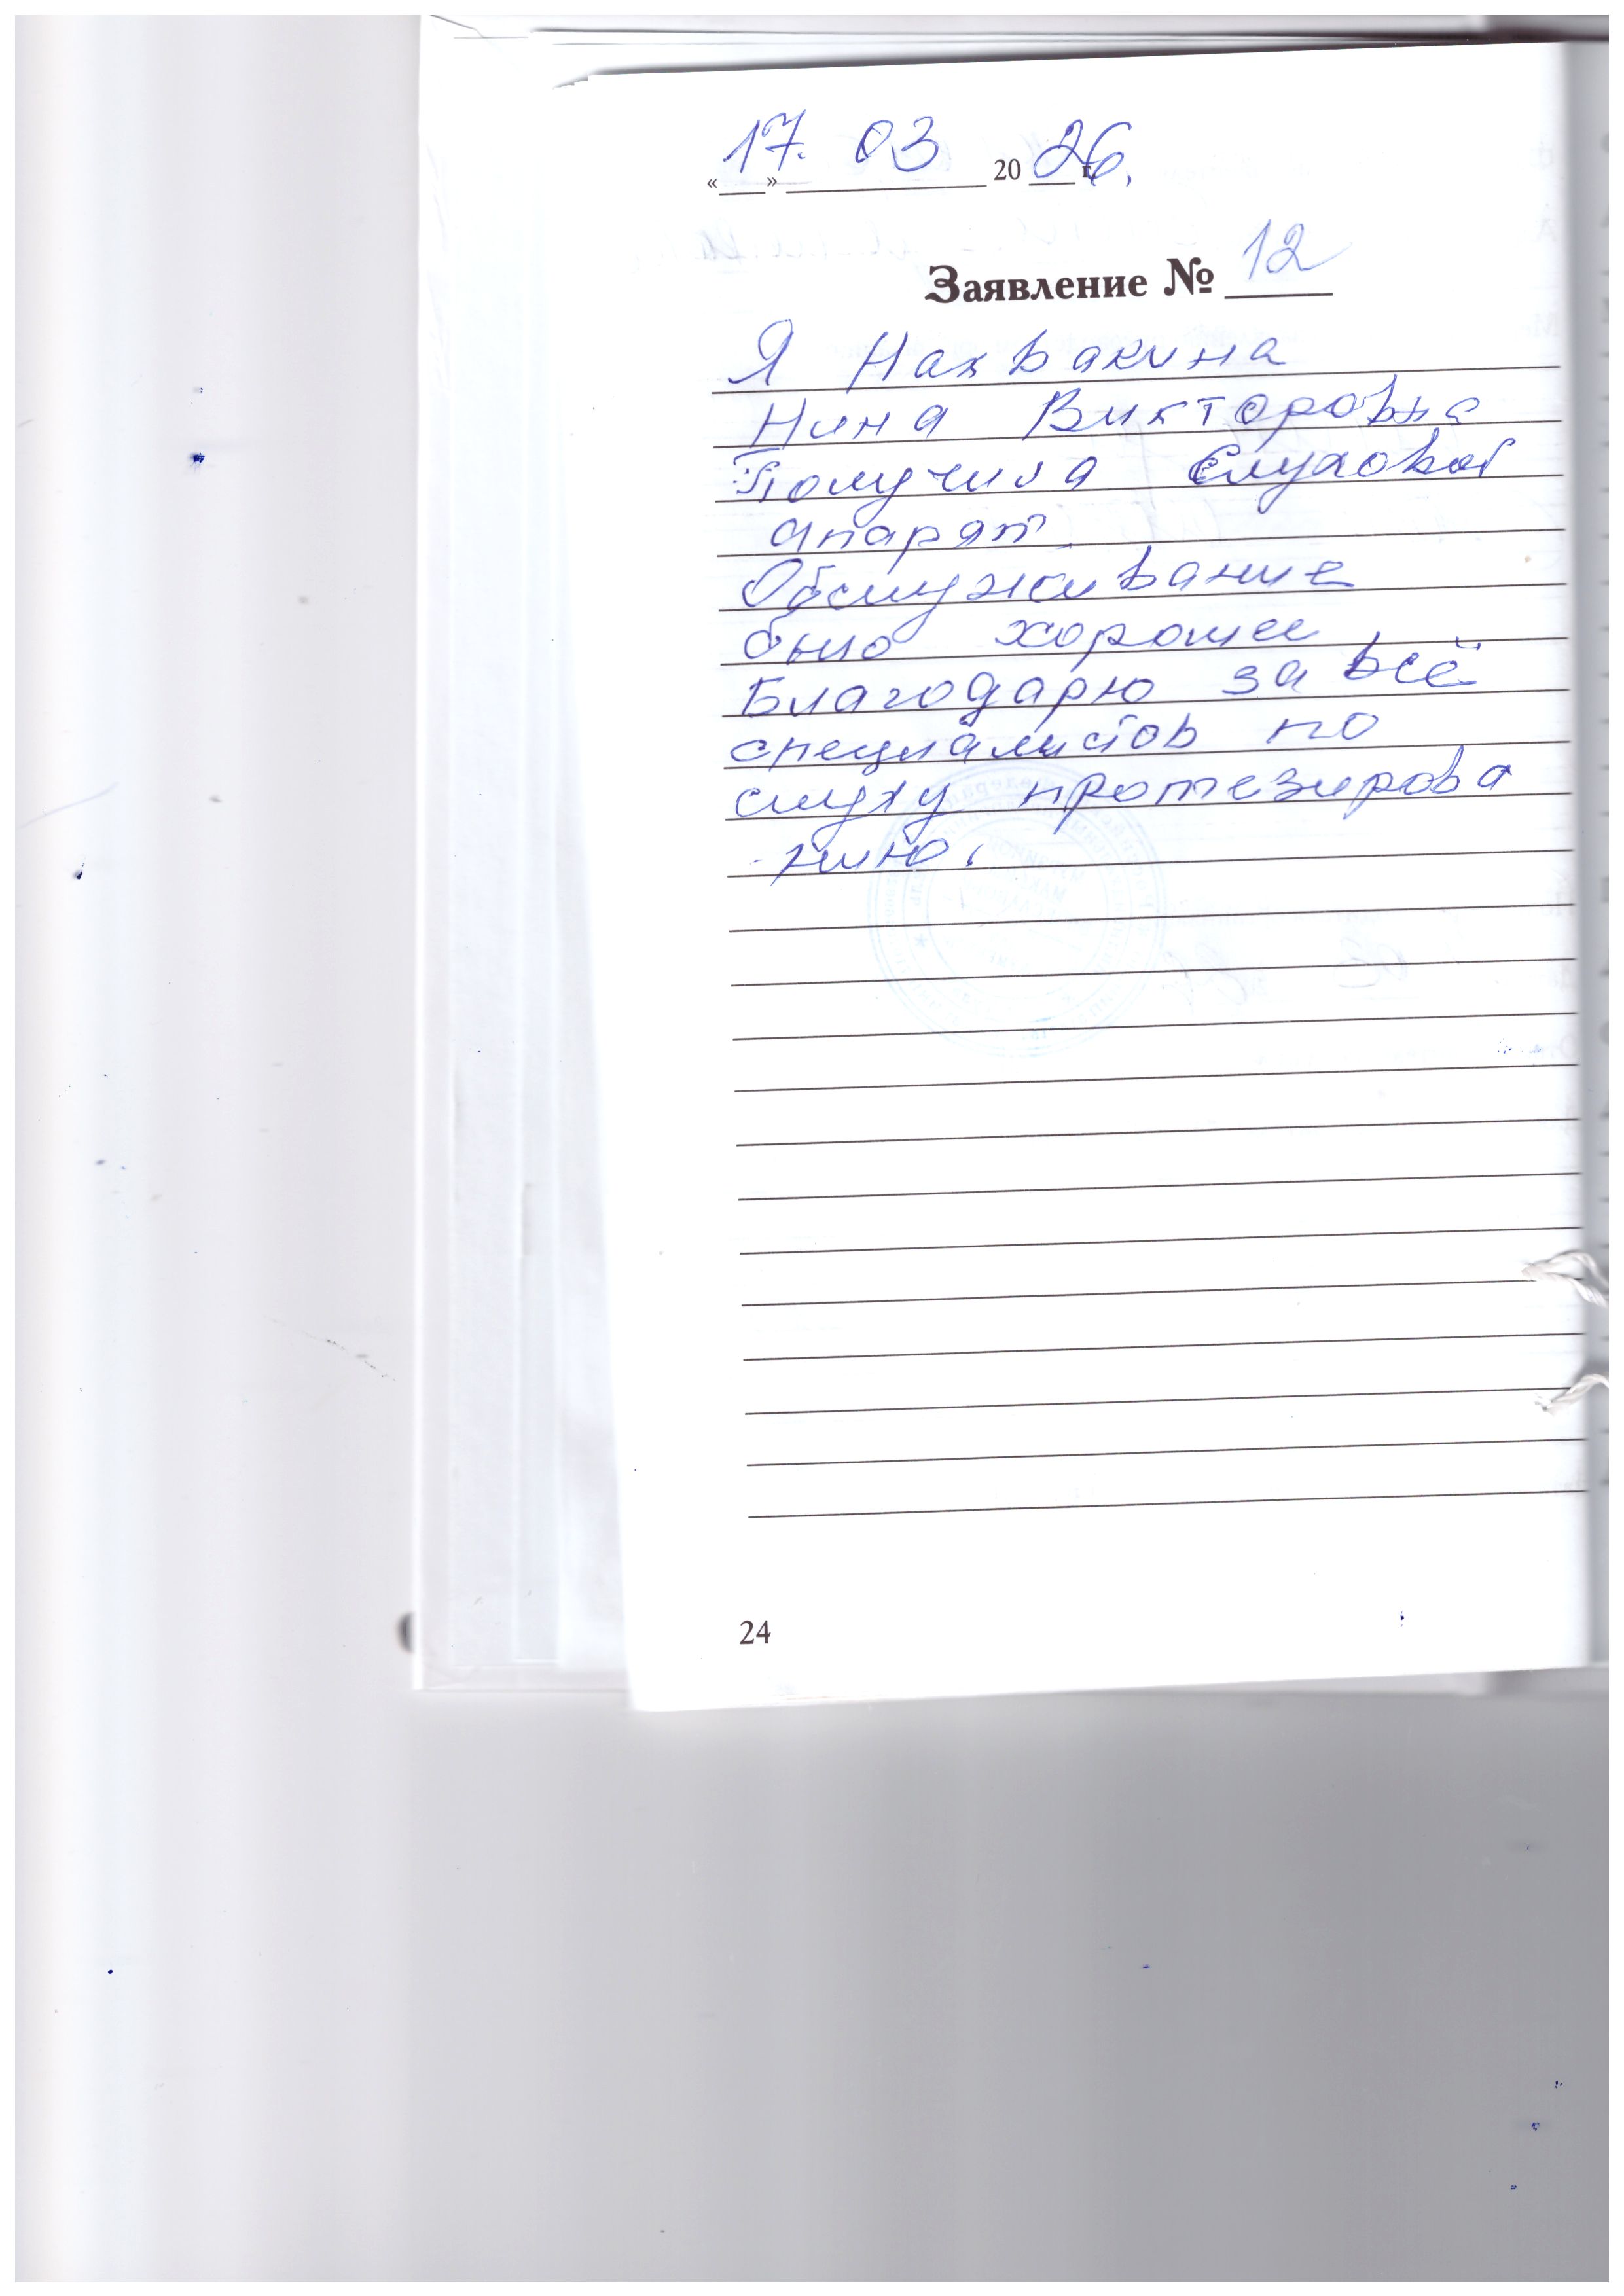 «17.» 03 2026 г.
Заявление № 12
Я Нахвакина
Нина Викторовна
Получила Слуховой
апарат.
Обслуживание
было хорошее
Благодарю за всё
специалистов по
слуху протезирова
нию.
24